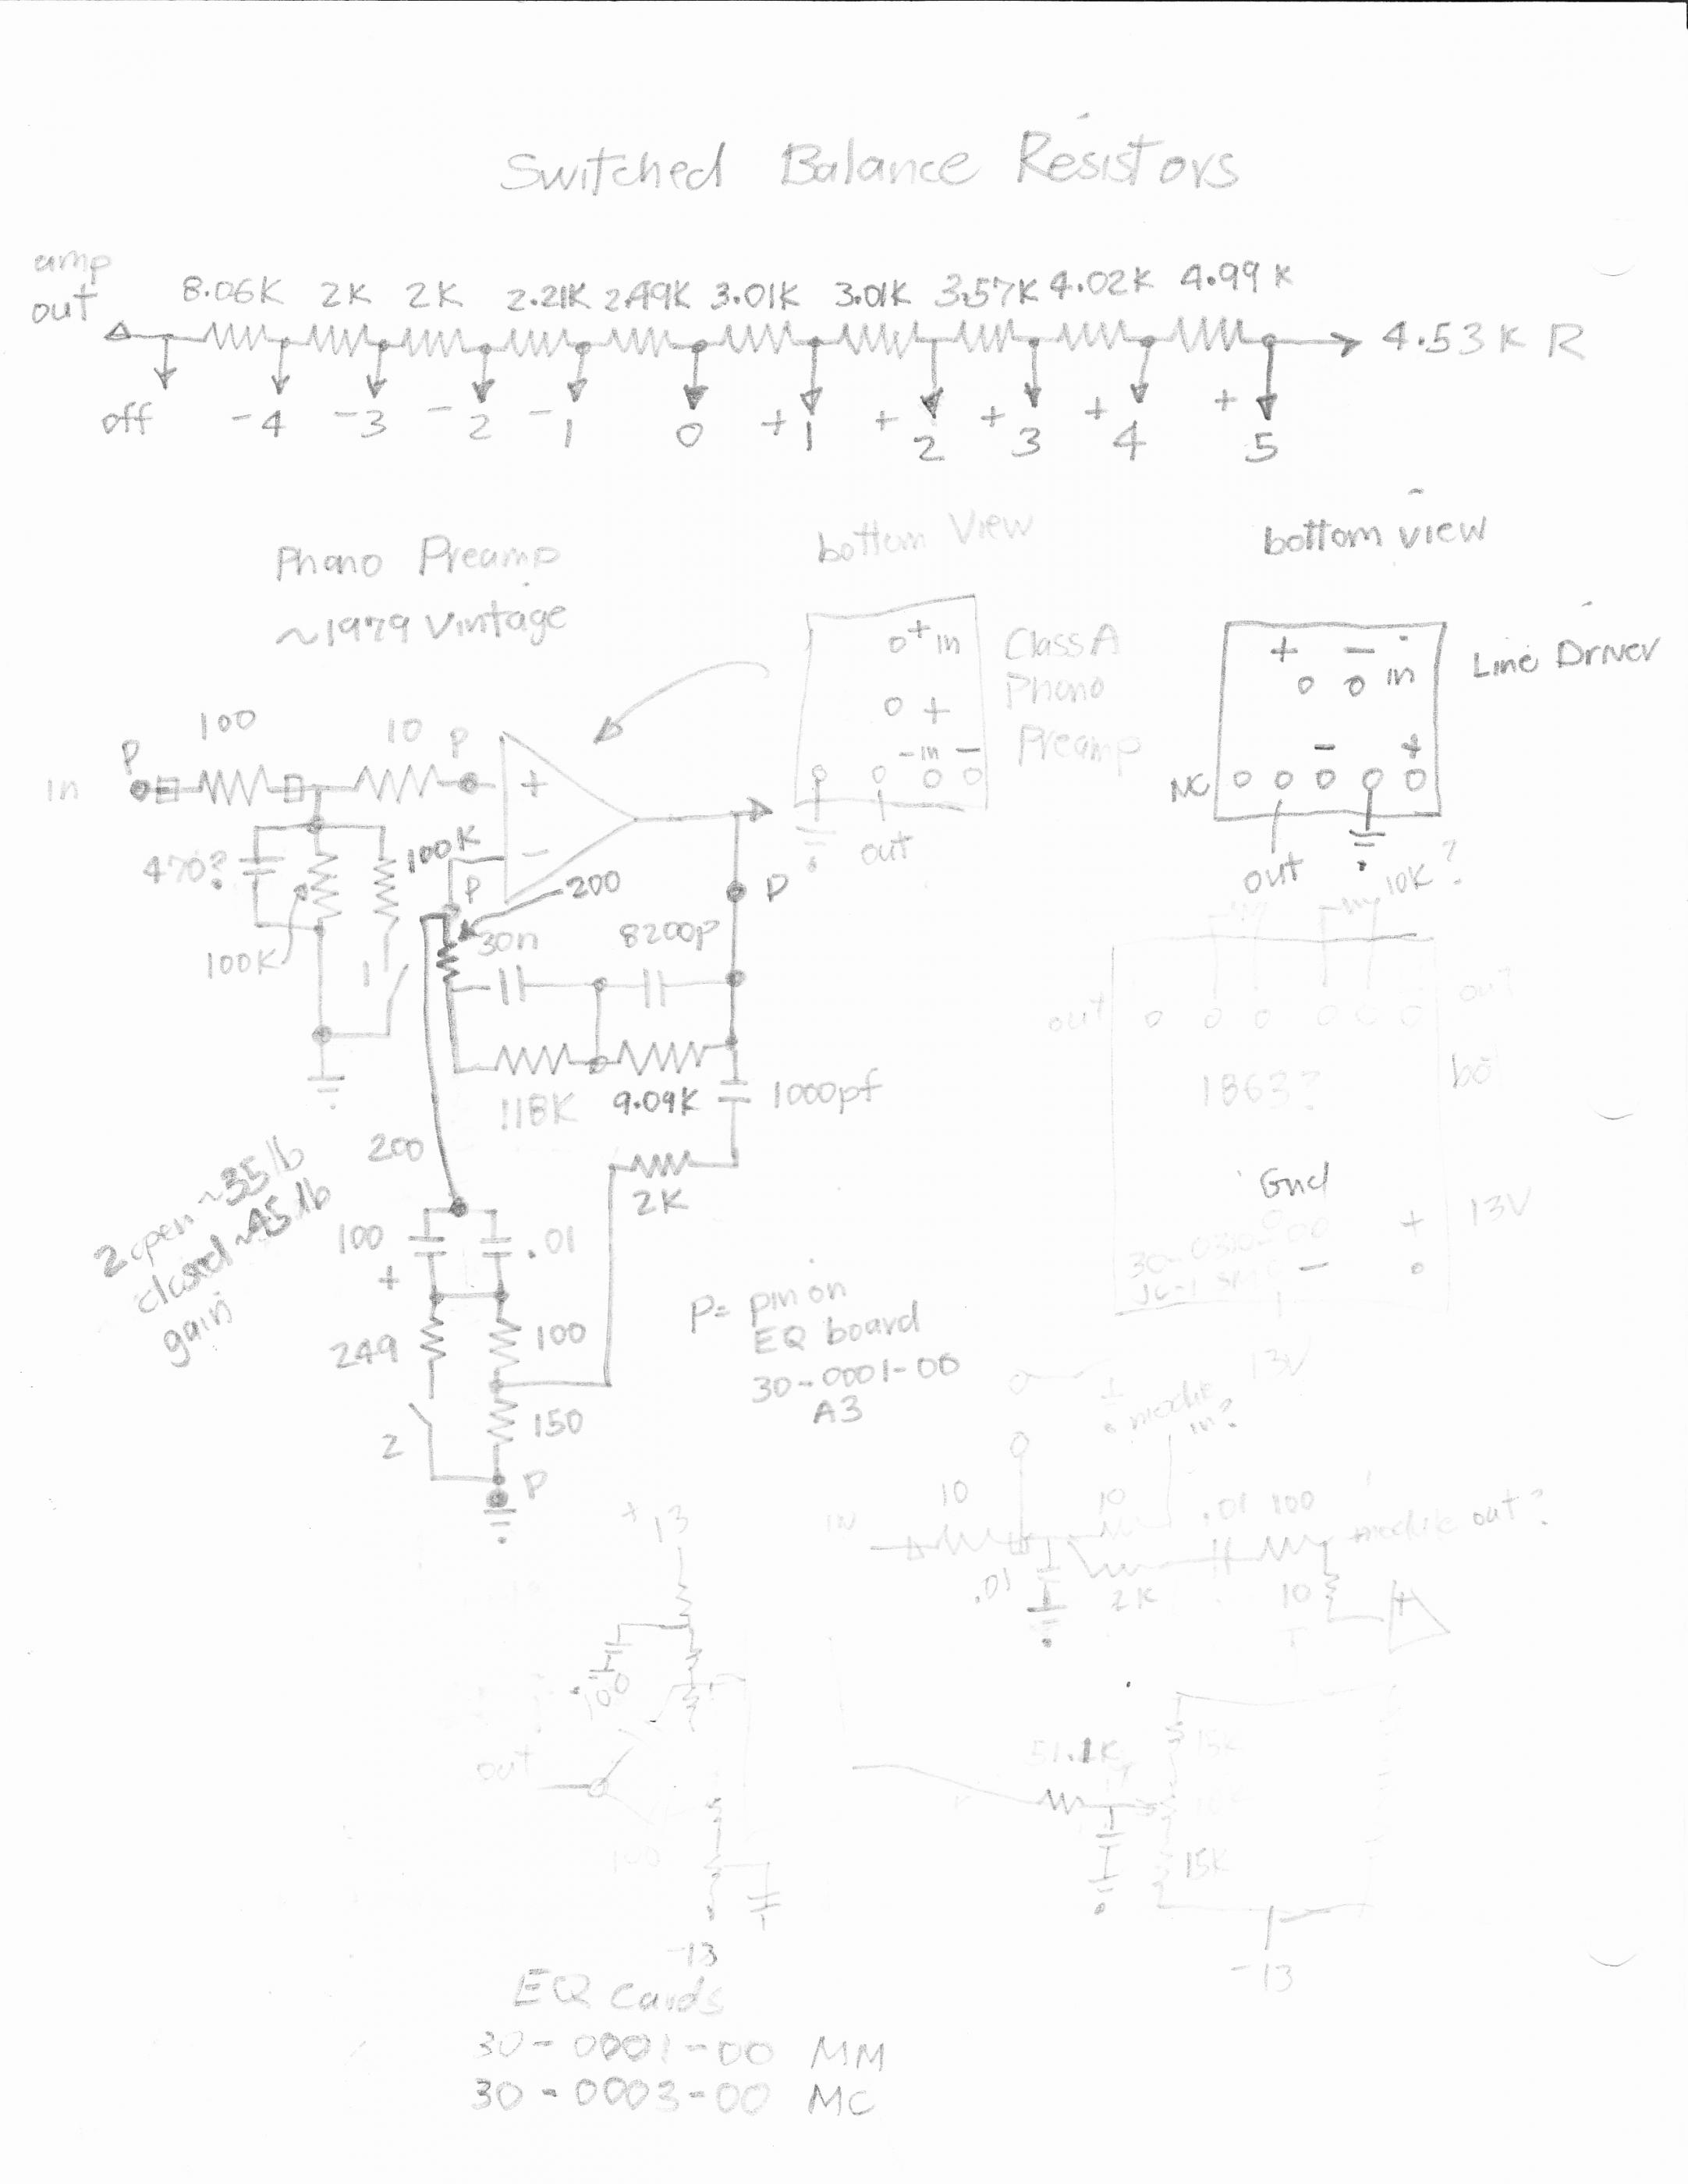 Switched Balance Resistors
amp
out
8.06K 2K 2K 2.21K 2.49K 3.01K 3.01K 3.57K 4.02K 4.99K
4.53K R
off -4 -3 -2 -1 0 +1 +2 +3 +4 +5
Phono Preamp
~1979 Vintage
bottom View
+ in
+
- in -
out
Class A
Phono
Preamp
bottom view
+ - in
- +
NC
out
Line Driver
in
P
100
10
P
+
-
470?
100K
100K
1
P
200
30n
8200p
P
118K
9.09K
1000pf
2K
200
2 open ~35db
closed ~45db
gain
100
+
.01
249
100
150
2
P
P = pin on
EQ board
30-0001-00
A3
10K?
out
out
1863?
Gnd
+
13V
-
13V
module
in?
IN
10
.01
10
2K
.01
100
module out?
10
+
+13
100
out
100
-13
51.1K
15K
15K
-13
EQ Cards
30-0001-00 MM
30-0003-00 MC